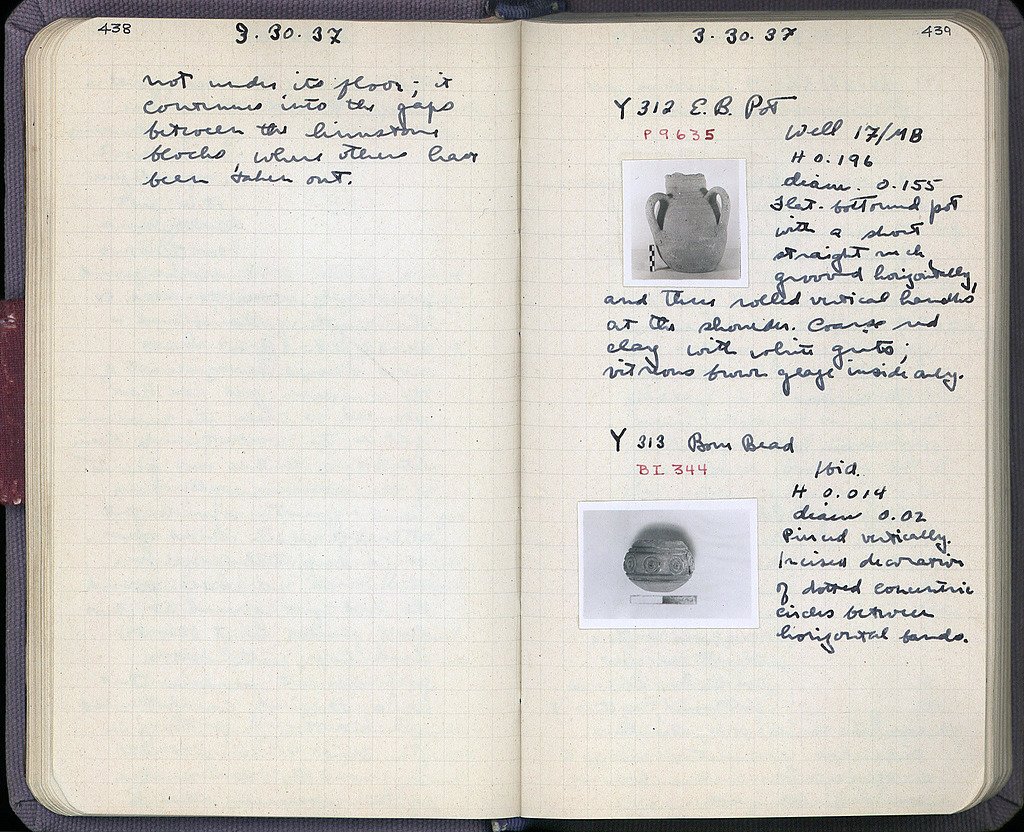 438
3. 30. 37
not under its floor; it
continues into the gaps
between the limestone
blocks, where others have
been taken out.
3. 30. 37
439
Y 312 E.B. Pot
P 9635
Well 17/ΜΒ
H 0.196
diam. 0.155
Flat-bottomed pot
with a short
straight neck,
grooved horizontally,
and three rolled vertical handles
at the shoulder. Coarse red
clay with white grits;
vitreous brown glaze inside only.
Y 313 Bone Bead
BI 344
Ibid.
H 0.014
diam 0.02
Pierced vertically.
Incised decoration
of dotted concentric
circles between
horizontal bands.